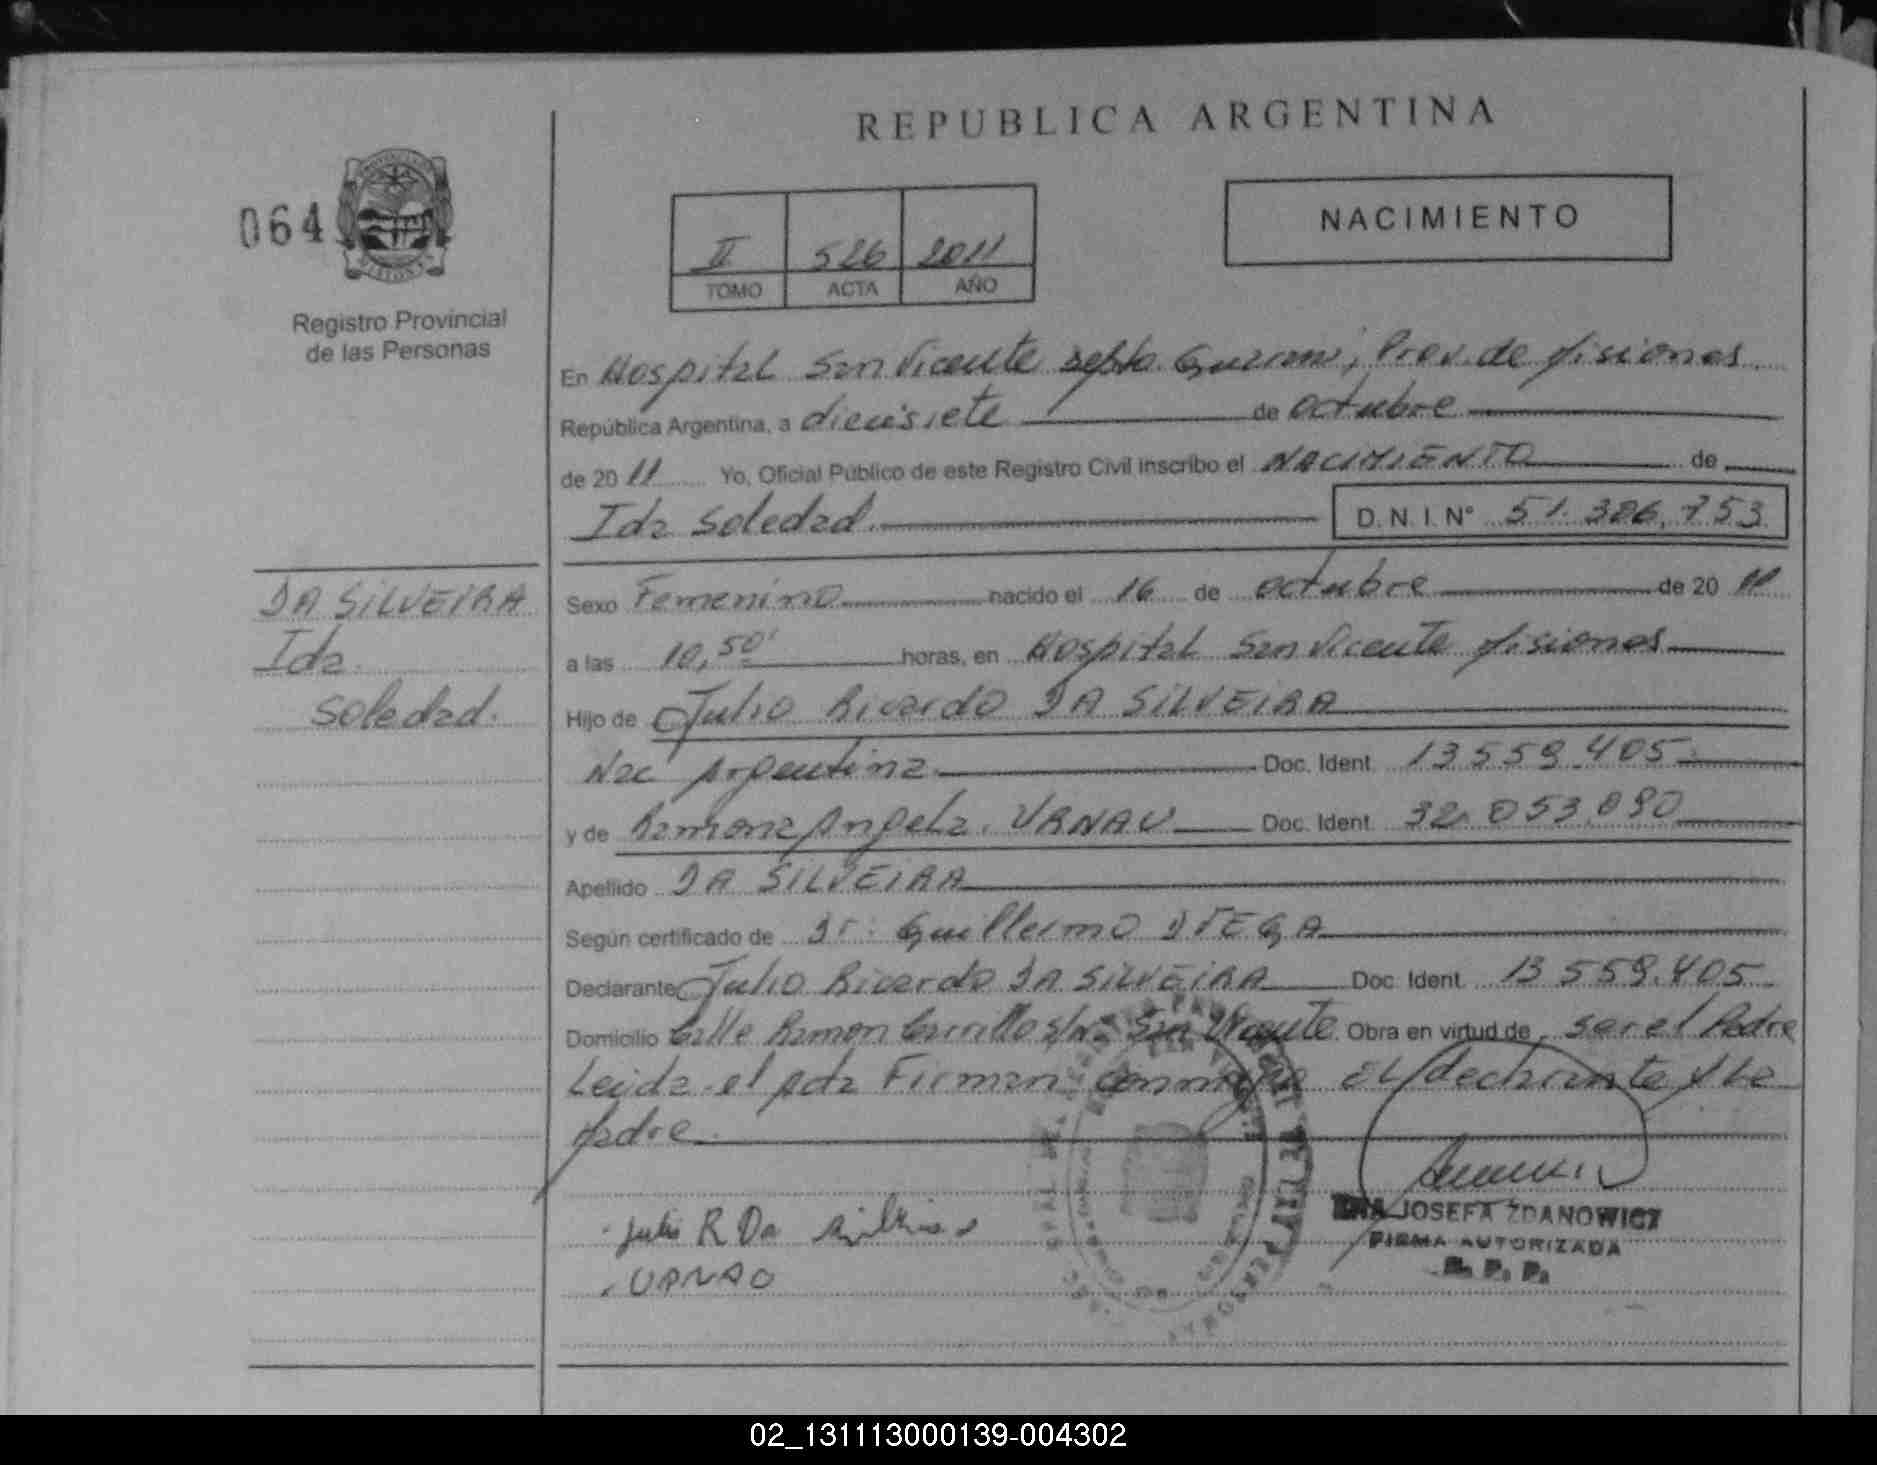 REPUBLICA ARGENTINA
064
MISIONES
Registro Provincial
de las Personas
II 526 2011
TOMO ACTA AÑO
NACIMIENTO
En Hospital San Vicente Depto. Guarani, Prov. de Misiones
República Argentina, a diecisiete de octubre
de 20 11 Yo, Oficial Público de este Registro Civil inscribo el NACIMIENTO de
Ida Soledad. D. N. I. N° 51.386.753
DA SILVEIRA
Ida
Soledad.
Sexo Femenino nacido el 16 de octubre de 20 11
a las 10,50' horas, en Hospital San Vicente Misiones
Hijo de Julio Ricardo DA SILVEIRA
Nac Argentina Doc. Ident. 13.559.405
y de Ramona Angela. URNAU Doc. Ident. 32.053.090
Apellido DA SILVEIRA
Según certificado de Dr. Guillermo
Declarante Julio Ricardo DA SILVEIRA Doc. Ident. 13.559.405
Domicilio Calle Ramon Carrillo s/n San Vicente. Obra en virtud de ser el Padre
Leida el Acta Firman conmigo EL declarante y La
Madre.
Julio R Da
JOSEFA ZDANOWICZ
FIRMA AUTORIZADA
R. P. P.
02_131113000139-004302